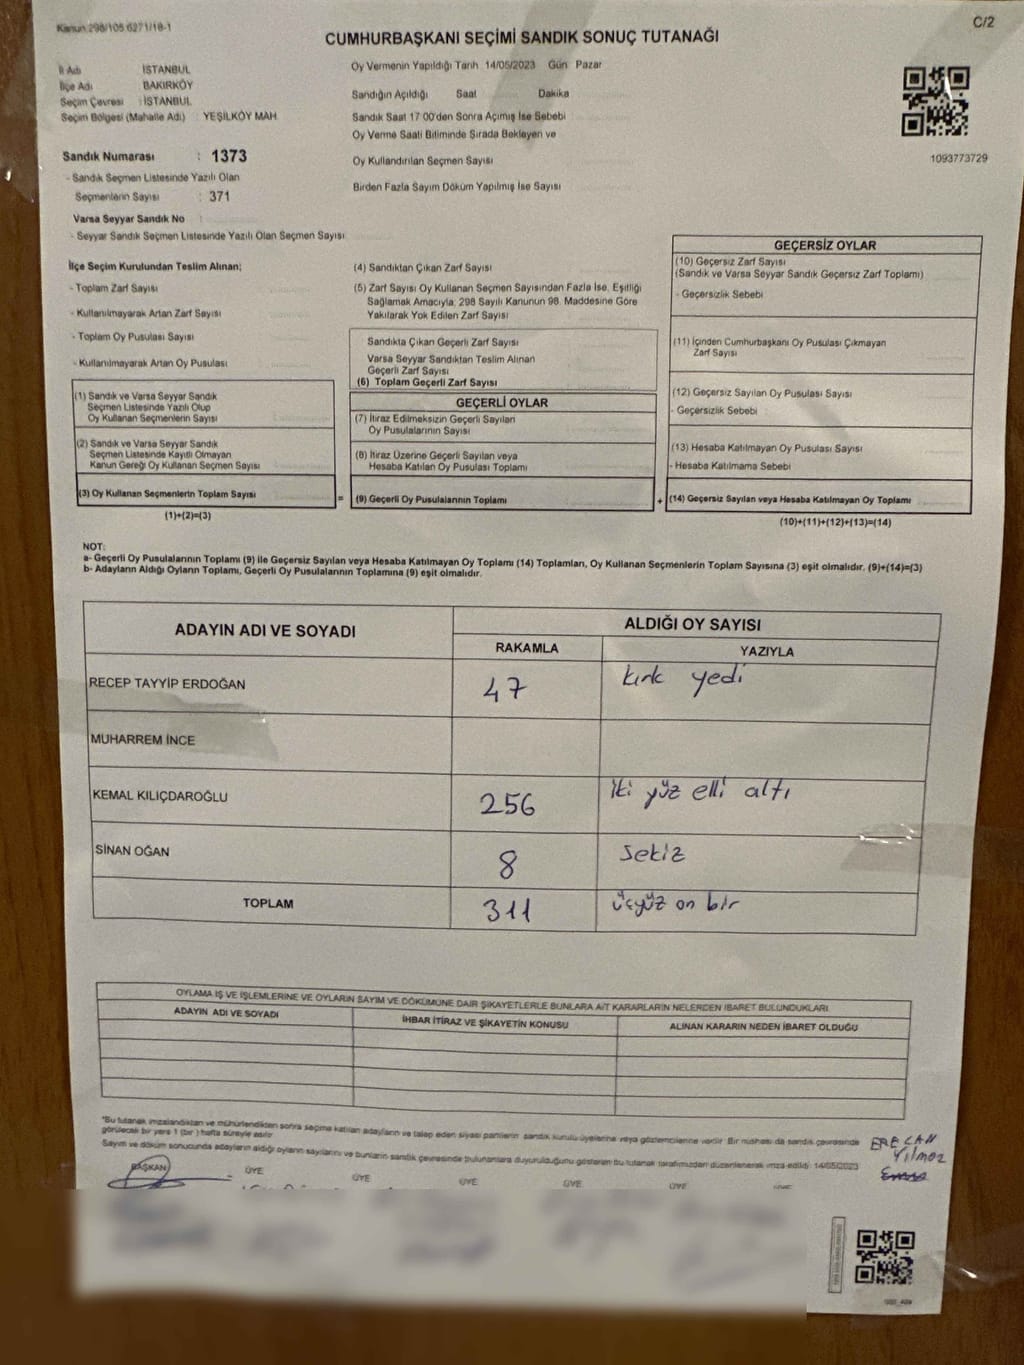 Kanun 298/105 6271/18-1
C/2
CUMHURBAŞKANI SEÇİMİ SANDIK SONUÇ TUTANAĞI
İl Adı İSTANBUL
İlçe Adı BAKIRKÖY
Seçim Çevresi : İSTANBUL
Seçim Bölgesi (Mahalle Adı) : YEŞİLKÖY MAH.
Sandık Numarası : 1373
- Sandık Seçmen Listesinde Yazılı Olan
Seçmenlerin Sayısı : 371
Varsa Seyyar Sandık No
- Seyyar Sandık Seçmen Listesinde Yazılı Olan Seçmen Sayısı
Oy Vermenin Yapıldığı Tarih 14/05/2023 Gün Pazar
Sandığın Açıldığı Saat Dakika
Sandık Saat 17:00'den Sonra Açımış İse Sebebi
Oy Verme Saati Bitiminde Sırada Bekleyen ve
Oy Kullandırılan Seçmen Sayısı
Birden Fazla Sayım Döküm Yapılmış İse Sayısı
1093773729
İlçe Seçim Kurulundan Teslim Alınan;
- Toplam Zarf Sayısı
- Kullanılmayarak Artan Zarf Sayısı
- Toplam Oy Pusulası Sayısı
- Kullanılmayarak Artan Oy Pusulası
(1) Sandık ve Varsa Seyyar Sandık
Seçmen Listesinde Yazılı Olup
Oy Kullanan Seçmenlerin Sayısı
(2) Sandık ve Varsa Seyyar Sandık
Seçmen Listesinde Kayıtlı Olmayan
Kanun Gereği Oy Kullanan Seçmen Sayısı
(3) Oy Kullanan Seçmenlerin Toplam Sayısı
(1)+(2)=(3)
=
(4) Sandıktan Çıkan Zarf Sayısı
(5) Zarf Sayısı Oy Kullanan Seçmen Sayısından Fazla İse, Eşitliği
Sağlamak Amacıyla, 298 Sayılı Kanunun 98. Maddesine Göre
Yakılarak Yok Edilen Zarf Sayısı
Sandıkta Çıkan Geçerli Zarf Sayısı
Varsa Seyyar Sandıktan Teslim Alınan
Geçerli Zarf Sayısı
(6) Toplam Geçerli Zarf Sayısı
GEÇERLİ OYLAR
(7) İtiraz Edilmeksizin Geçerli Sayılan
Oy Pusulalarının Sayısı
(8) İtiraz Üzerine Geçerli Sayılan veya
Hesaba Katılan Oy Pusulası Toplamı
(9) Geçerli Oy Pusulalarının Toplamı
+
GEÇERSİZ OYLAR
(10) Geçersiz Zarf Sayısı
(Sandık ve Varsa Seyyar Sandık Geçersiz Zarf Toplamı)
- Geçersizlik Sebebi
(11) İçinden Cumhurbaşkanı Oy Pusulası Çıkmayan
Zarf Sayısı
(12) Geçersiz Sayılan Oy Pusulası Sayısı
- Geçersizlik Sebebi
(13) Hesaba Katılmayan Oy Pusulası Sayısı
- Hesaba Katılmama Sebebi
(14) Geçersiz Sayılan veya Hesaba Katılmayan Oy Toplamı
(10)+(11)+(12)+(13)=(14)
NOT:
a- Geçerli Oy Pusulalarının Toplamı (9) ile Geçersiz Sayılan veya Hesaba Katılmayan Oy Toplamı (14) Toplamları, Oy Kullanan Seçmenlerin Toplam Sayısına (3) eşit olmalıdır. (9)+(14)=(3)
b- Adayların Aldığı Oyların Toplamı, Geçerli Oy Pusulalarının Toplamına (9) eşit olmalıdır.
ADAYIN ADI VE SOYADI ALDIĞI OY SAYISI
RAKAMLA YAZIYLA
RECEP TAYYİP ERDOĞAN 47 kırk yedi
MUHARREM İNCE
KEMAL KILIÇDAROĞLU 256 iki yüz elli altı
SİNAN OĞAN 8 sekiz
TOPLAM 311 üçyüz on bir
OYLAMA İŞ VE İŞLEMLERİNE VE OYLARIN SAYIM VE DÖKÜMÜNE DAİR ŞİKAYETLERLE BUNLARA AİT KARARLARIN NELERDEN İBARET BULUNDUKLARI
ADAYIN ADI VE SOYADI İHBAR İTİRAZ VE ŞİKAYETİN KONUSU ALINAN KARARIN NEDEN İBARET OLDUĞU
*Bu tutanak imzalandıktan ve mühürlendikten sonra seçime katılan adayların ve talep eden siyasi partilerin sandık kurulu üyelerine veya gözlemcilerine verilir. Bir nüshası da sandık çevresinde
görülecek bir yere 1 (bir) hafta süreyle asılır.
Sayım ve döküm sonucunda adayların aldığı oyların sayılarını ve bunların sandık çevresinde bulunanlara duyurulduğunu gösteren bu tutanak tarafımızdan düzenlenerek imza edildi. 14/05/2023
ERECAN
Yılmaz
BAŞKAN ÜYE ÜYE ÜYE ÜYE ÜYE